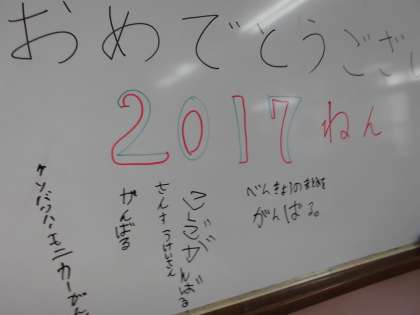 おめでとうござ
2017ねん
べんきょうのまとめを
がんばる。
さんすうけいさん
がんばる
ケンバンハーモニカーがん